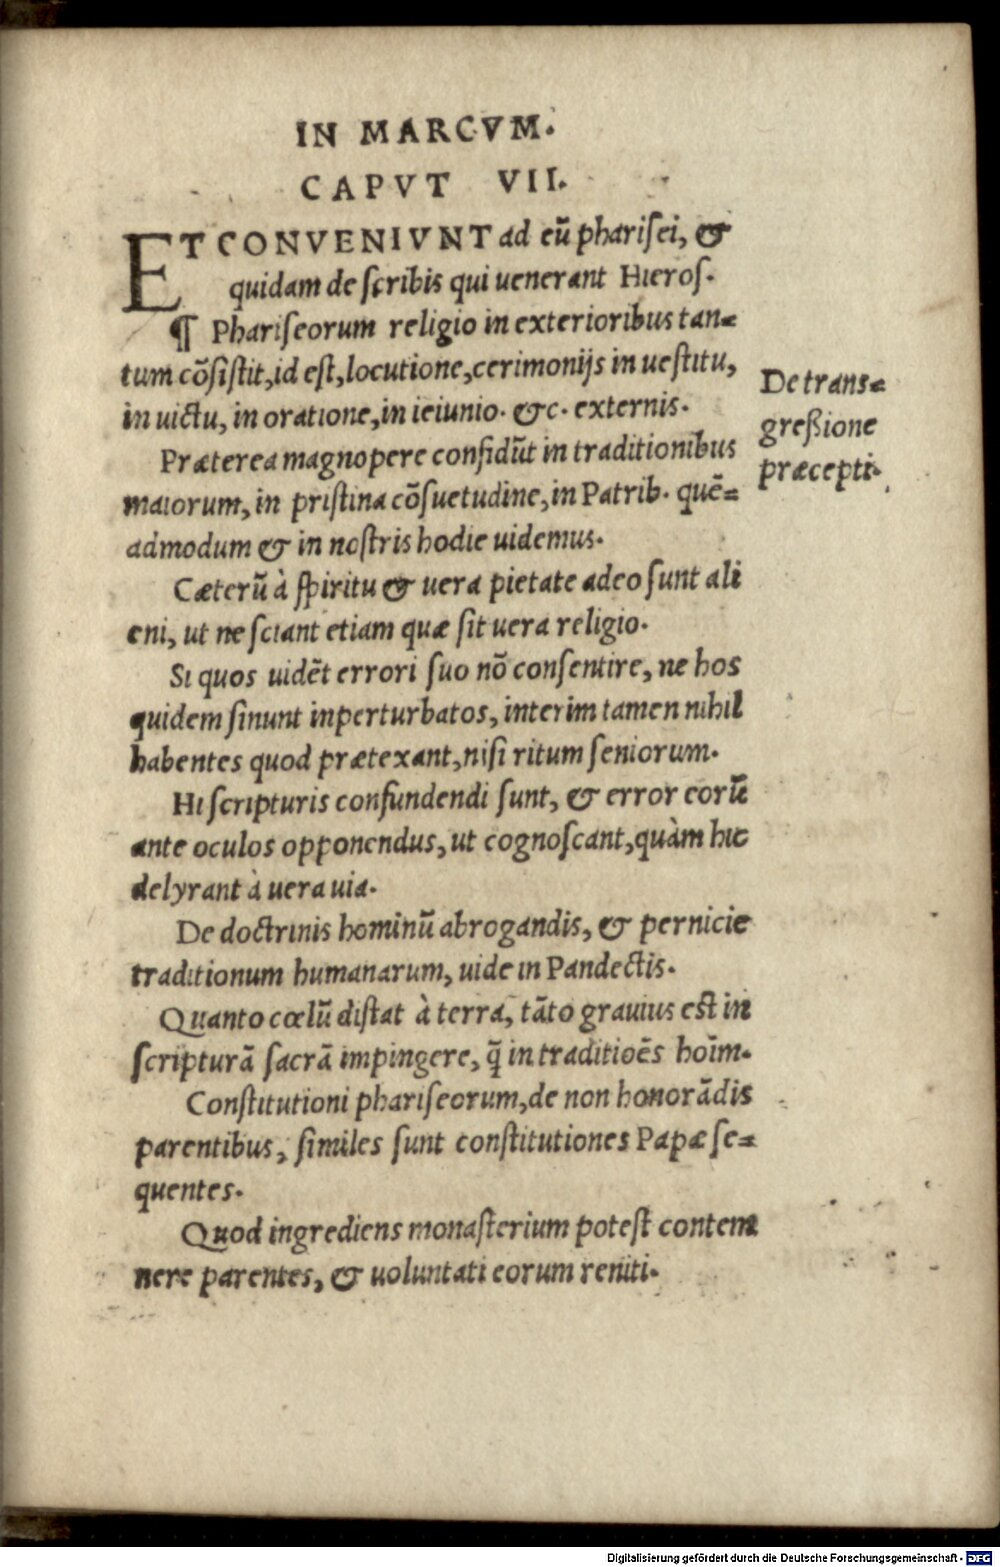 IN MARCVM.
CAPVT VII.
ET CONVENIVNT ad eū pharisei, &
quidam de scribis qui uenerant Hieros.
¶ Phariseorum religio in exterioribus tan=
tum cōsistit, id est, locutione, cerimonijs in uestitu,
in uictu, in oratione, in ieiunio. &c. externis.
Præterea magnopere confidūt in traditionibus
maiorum, in pristina cōsuetudine, in Patrib. quē=
admodum & in nostris hodie uidemus.
Cæterū à spiritu & uera pietate adeo sunt ali
eni, ut ne sciant etiam quæ sit uera religio.
Si quos uidēt errori suo nō consentire, ne hos
quidem sinunt inperturbatos, interim tamen nihil
habentes quod prætexant, nisi ritum seniorum.
Hi scripturis confundendi sunt, & error eorū
ante oculos opponendus, ut cognoscant, quàm hic
delyrant à uera uia.
De doctrinis hominū abrogandis, & pernicie
traditionum humanarum, uide in Pandectis.
Quanto cœlū distat à terra, tāto grauius est in
scripturā sacrā impingere, q̄ in traditioēs hoīm.
Constitutioni phariseorum, de non honorādis
parentibus, similes sunt constitutiones Papæ se=
quentes.
Quod ingrediens monasterium potest contem
nere parentes, & uoluntati eorum reniti.
De trans=
greßione
præcepti.
Digitalisierung gefördert durch die Deutsche Forschungsgemeinschaft - DFG